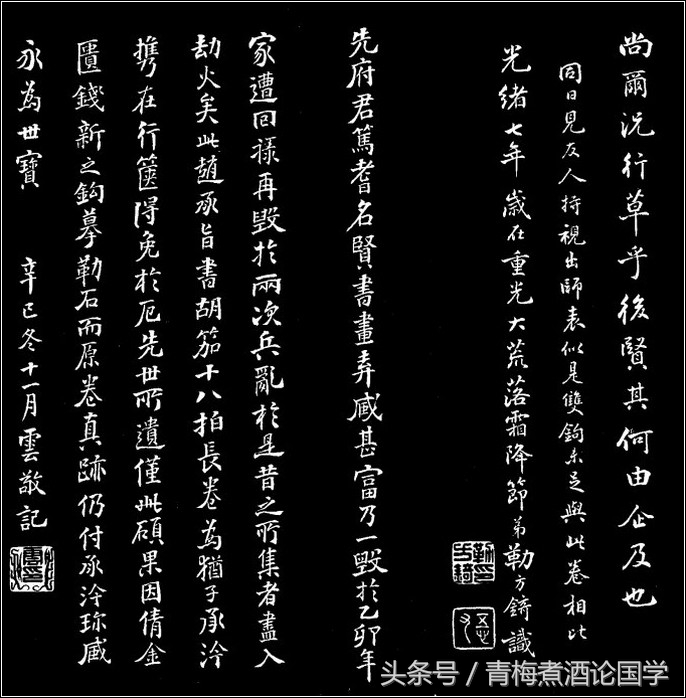 尚爾況行草乎後賢其何由企及也
同日見友人持視出師表似是雙鉤未足與此卷相比
光緒七年歲在重光大荒落霜降節弟勒方錡識
先府君篤耆名賢書畫弆臧甚富乃一毀於乙卯年
家遭回祿再毀於兩次兵亂於是昔之所集者盡入
劫火矣此趙承旨書胡笳十八拍長卷為猶子承泠
攜在行篋得免於厄先世所遺僅此碩果因倩金
匱錢新之鉤摹勒石而原卷真跡仍付承泠珎臧
永為世寶 辛巳冬十一月雲敬記
头条号 / 青梅煮酒论国学